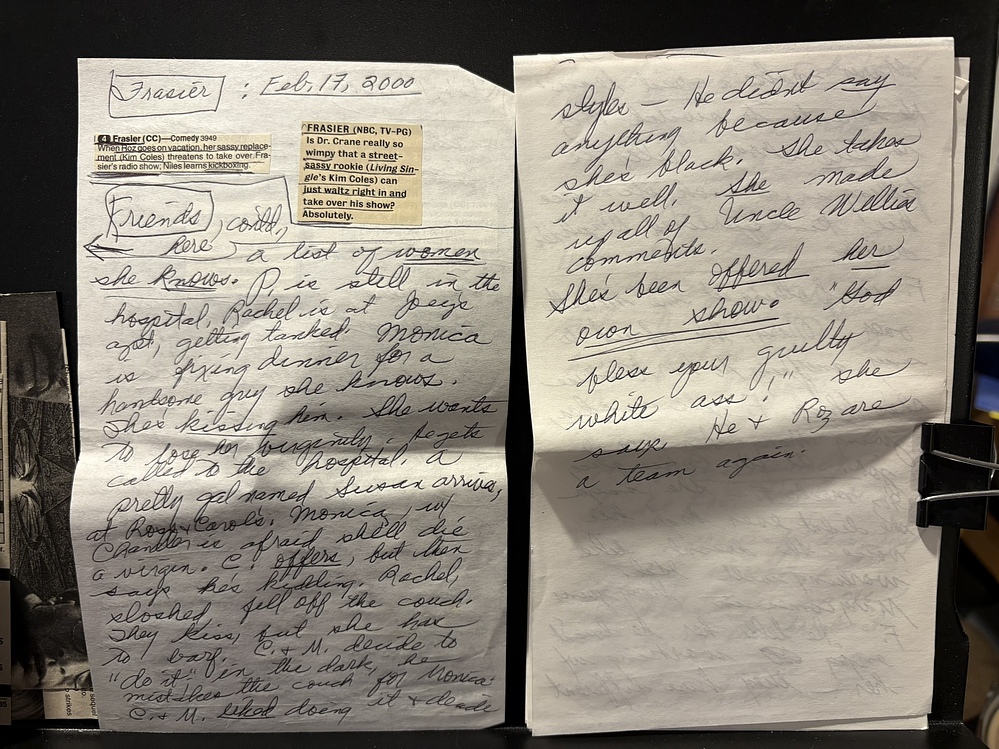 Frasier : Feb. 17, 2000
4 Frasier (CC)—Comedy 3949
When Roz goes on vacation, her sassy replace-
ment (Kim Coles) threatens to take over Fra-
sier's radio show; Niles learns kickboxing.
FRASIER (NBC, TV-PG)
Is Dr. Crane really so
wimpy that a street-
sassy rookie (Living Sin-
gle's Kim Coles) can
just waltz right in and
take over his show?
Absolutely.
Friends, cont'd,
here a list of women
she knows. P. is still in the
hospital, Rachel is at Joey's
apt, getting tanked. Monica
is fixing dinner for a
handsome guy she knows.
She's kissing him. She wants
to lose her virginity. He gets
called to the hospital. A
pretty gal named Susan arrives,
at Ross & Carol's. Monica, w/
Chandler is afraid she'll die
a virgin. C. offers, but then
says he's kidding. Rachel,
sloshed fell off the couch.
They kiss, but she has
to barf. C. & M. decide to
"do it" in the dark, he
mistakes the couch for Monica.
C. & M. liked doing it & decide
styles — He didn't say
anything because
she's black. She takes
it well. She made
up all of Uncle Willie's
comments.
She's been offered her
own show. "God
bless your guilty
white ass!," she
says. He & Roz are
a team again.